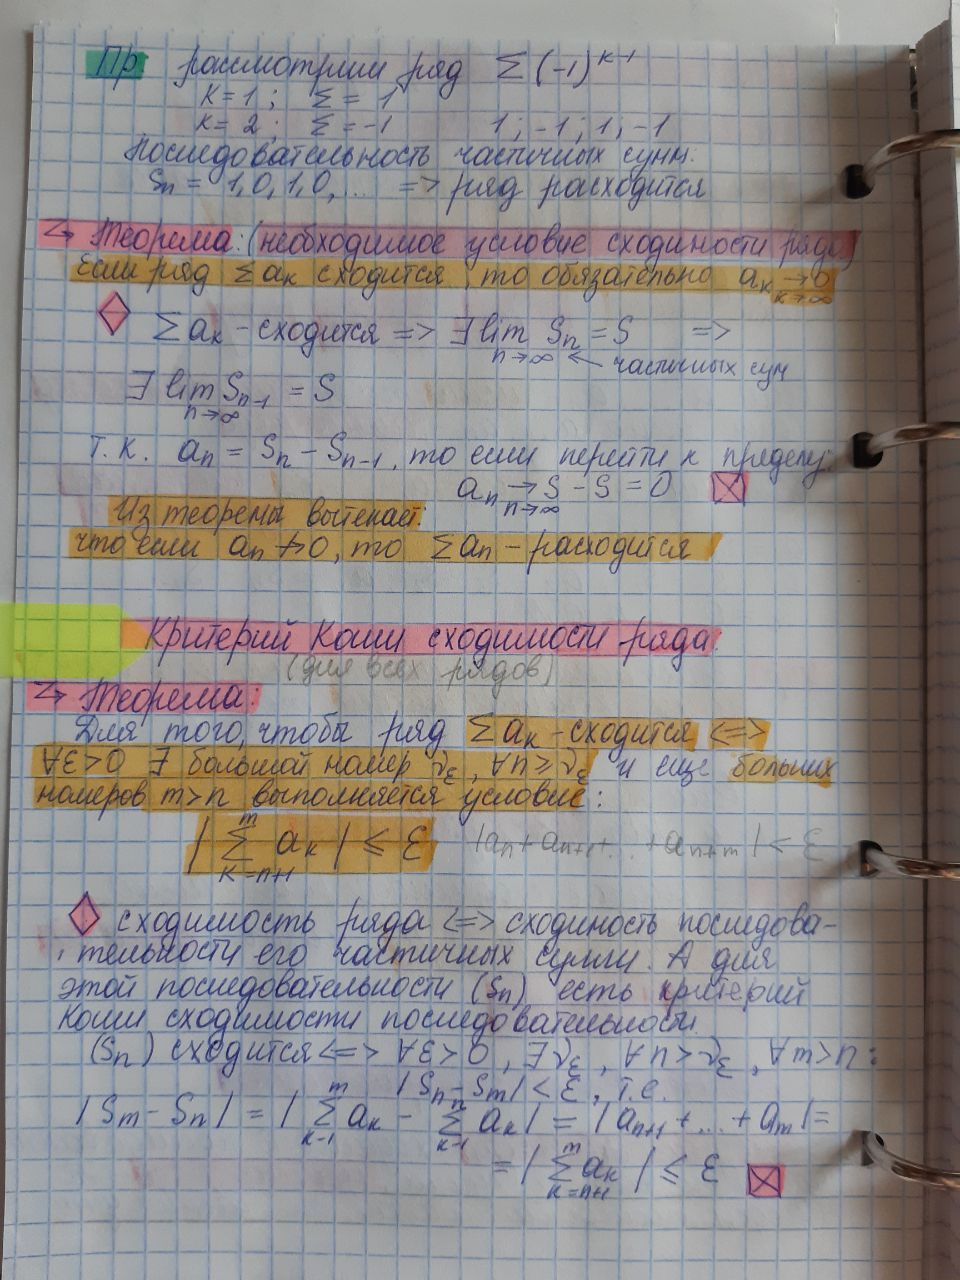 Пр рассмотрим ряд Σ (-1)^{k-1}
k=1; Σ = 1
k=2; Σ = -1 1; -1; 1; -1
Последовательность частичных сумм.
Sn = 1,0,1,0,... => ряд расходится
Теорема: (необходимое условие сходиности ряда)
Если ряд Σak сходится, то обязательно ak → 0 k→∞
Σak - сходится => ∃ lim Sn = S => n→∞
← частичных сум
∃ lim Sn-1 = S n→∞
т.к. an = Sn - Sn-1, то если перейти к пределу:
an → S - S = 0 n→∞
Из теоремы вытекает:
что если an ↛ 0, то Σan - расходится
Критерий Коши сходимости ряда
(для всех рядов)
Теорема:
Для того, чтобы ряд Σak - сходится <=>
∀ε>0 ∃ большой номер νε, ∀n≥νε и еще больших
номеров m>n выполняется условие:
| Σ_{k=n+1}^{m} ak | ≤ ε |an + an+1 + ... + an+m| < ε
сходимость ряда <=> сходиность последова-
тельности его частичных сумм. А для
этой последовательности (Sn) есть критерий
Коши сходимости последовательности.
(Sn) сходится <=> ∀ε>0, ∃νε, ∀n>νε, ∀m>n:
|Sn - Sm| < ε, т.е.
|Sm - Sn| = | Σ_{k-1}^{m} ak - Σ_{k-1}^{n} ak | = |an+1 + ... + am| =
= | Σ_{k=n+1}^{m} ak | ≤ ε